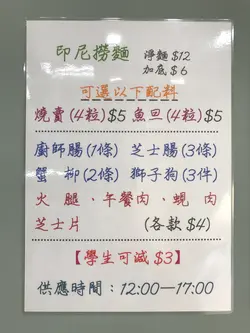 印尼撈麵 淨麵 $12
加底 $6
可選以下配料
燒賣(4粒)$5 魚旦(4粒)$5
廚師腸(1條) 芝士腸(3條)
蟹柳(2條) 獅子狗(3件)
火腿、午餐肉、蜆肉
芝士片 (各款 $4)
【學生可減 $3】
供應時間：12:00—17:00